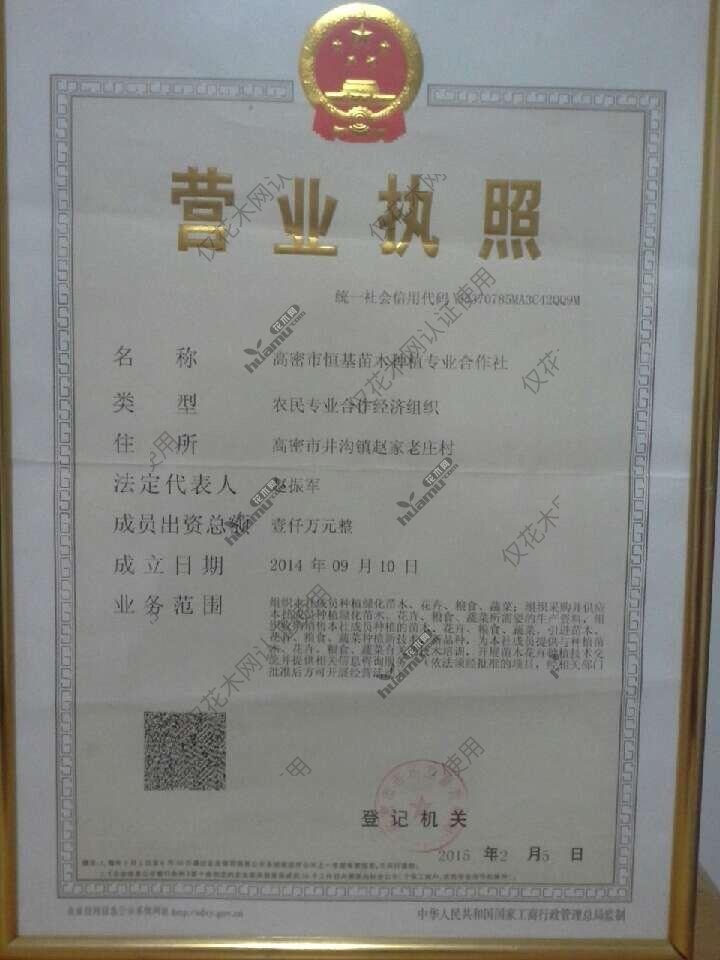 营业执照
统一社会信用代码
名 称 高密市恒基苗木种植专业合作社
类 型 农民专业合作经济组织
住 所 高密市井沟镇赵家老庄村
法定代表人 赵振军
成员出资总额 壹仟万元整
成立日期 2014年09月10日
业务范围 组织本社成员种植绿化苗木、花卉、粮食、蔬菜；组织采购并供应
本社成员种植绿化苗木、花卉、粮食、蔬菜所需要的生产资料，组
织收购销售本社成员种植的苗木、花卉、粮食、蔬菜，引进苗木、
花卉、粮食、蔬菜种植新技术、新品种，为本社成员提供与种植苗
木、花卉、粮食、蔬菜有关的技术培训，开展苗木花卉种植技术交
流并提供相关信息咨询服务。（依法须经批准的项目，经相关部门
批准后方可开展经营活动）
登记机关
2015 年 2 月 5 日
企业信用信息公示系统网址
中华人民共和国国家工商行政管理总局监制
仅花木网认证使用
花木网
huamu.com